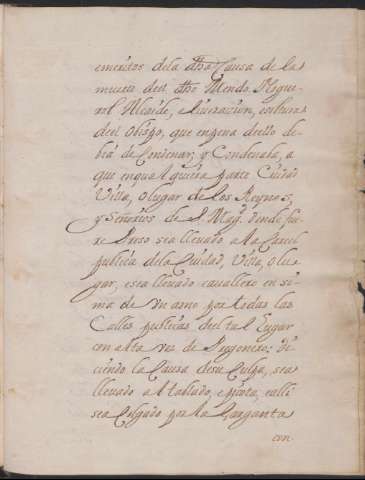 emeritos dela dha Causa de la
muerte del dho Mendo Nogue
rol Alcaide, e livracion, e soltura
del Obispo, que en pena dello de-
biá de Condenar; y Condenaba, a
que en qualquiera parte Ciudad
Villa, o lugar de los Reynos,
y Señorios de S. Mag.d donde fue-
re Preso sea llevado a la Carcel
publica dela Ciudad, Villa, o lu-
gar, e sea llevado cavallero en su
ma de un asno por todas las
Calles publicas del tal Lugar
con alta voz de Pregonero; di-
ciendo la Causa de su Culpa, sea
llevado al tablado, e picota, e alli
sea Colgado por la Garganta
con